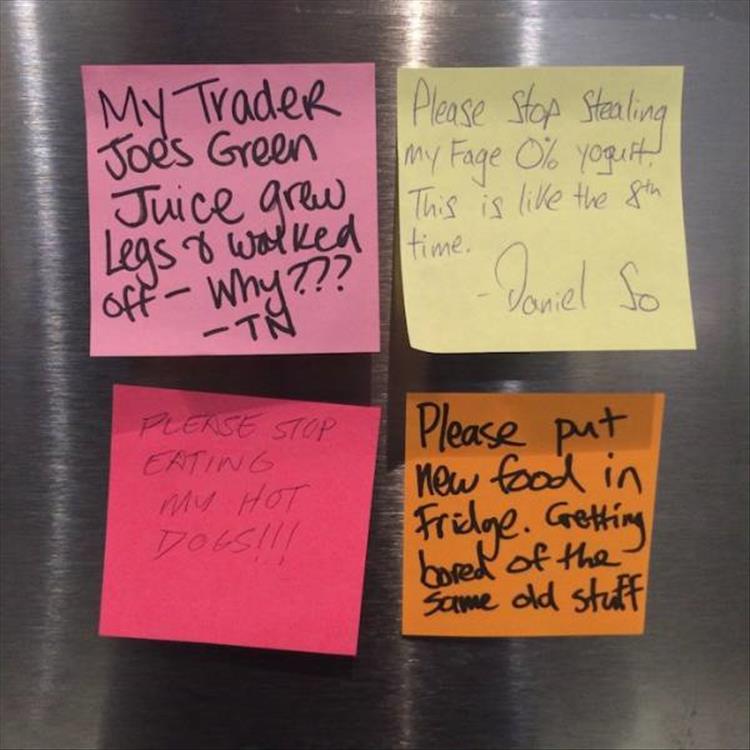 My Trader
Joe's Green
Juice grew
Legs & walked
off – Why???
– TN
Please Stop Stealing
My Fage 0% yogurt.
This is like the 8th
time.
- Daniel So
PLEASE STOP
EATING
MY HOT
DOGS!!!
Please put
new food in
Fridge. Getting
bored of the
same old stuff